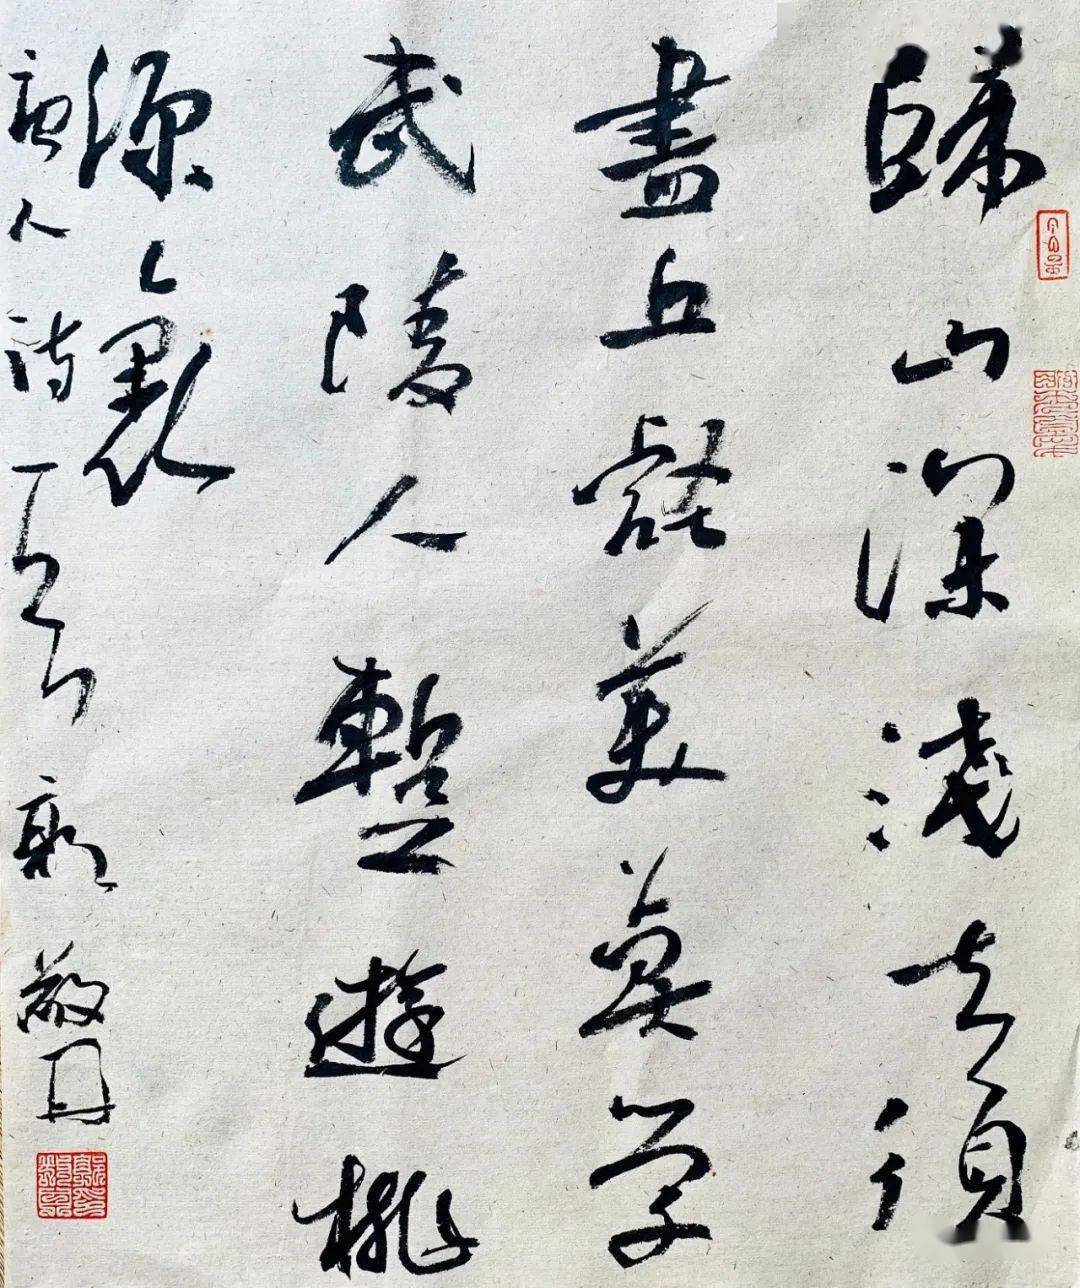 歸山深淺去須
盡丘壑美莫学
武陵人暫遊桃
源裏
唐人詩一首 郭敬丹